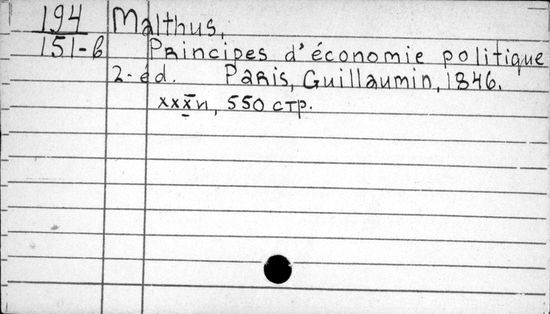 194
151-б
Malthus,
Principes d'économie politique
2-éd. Paris, Guillaumin, 1846.
550 стр.